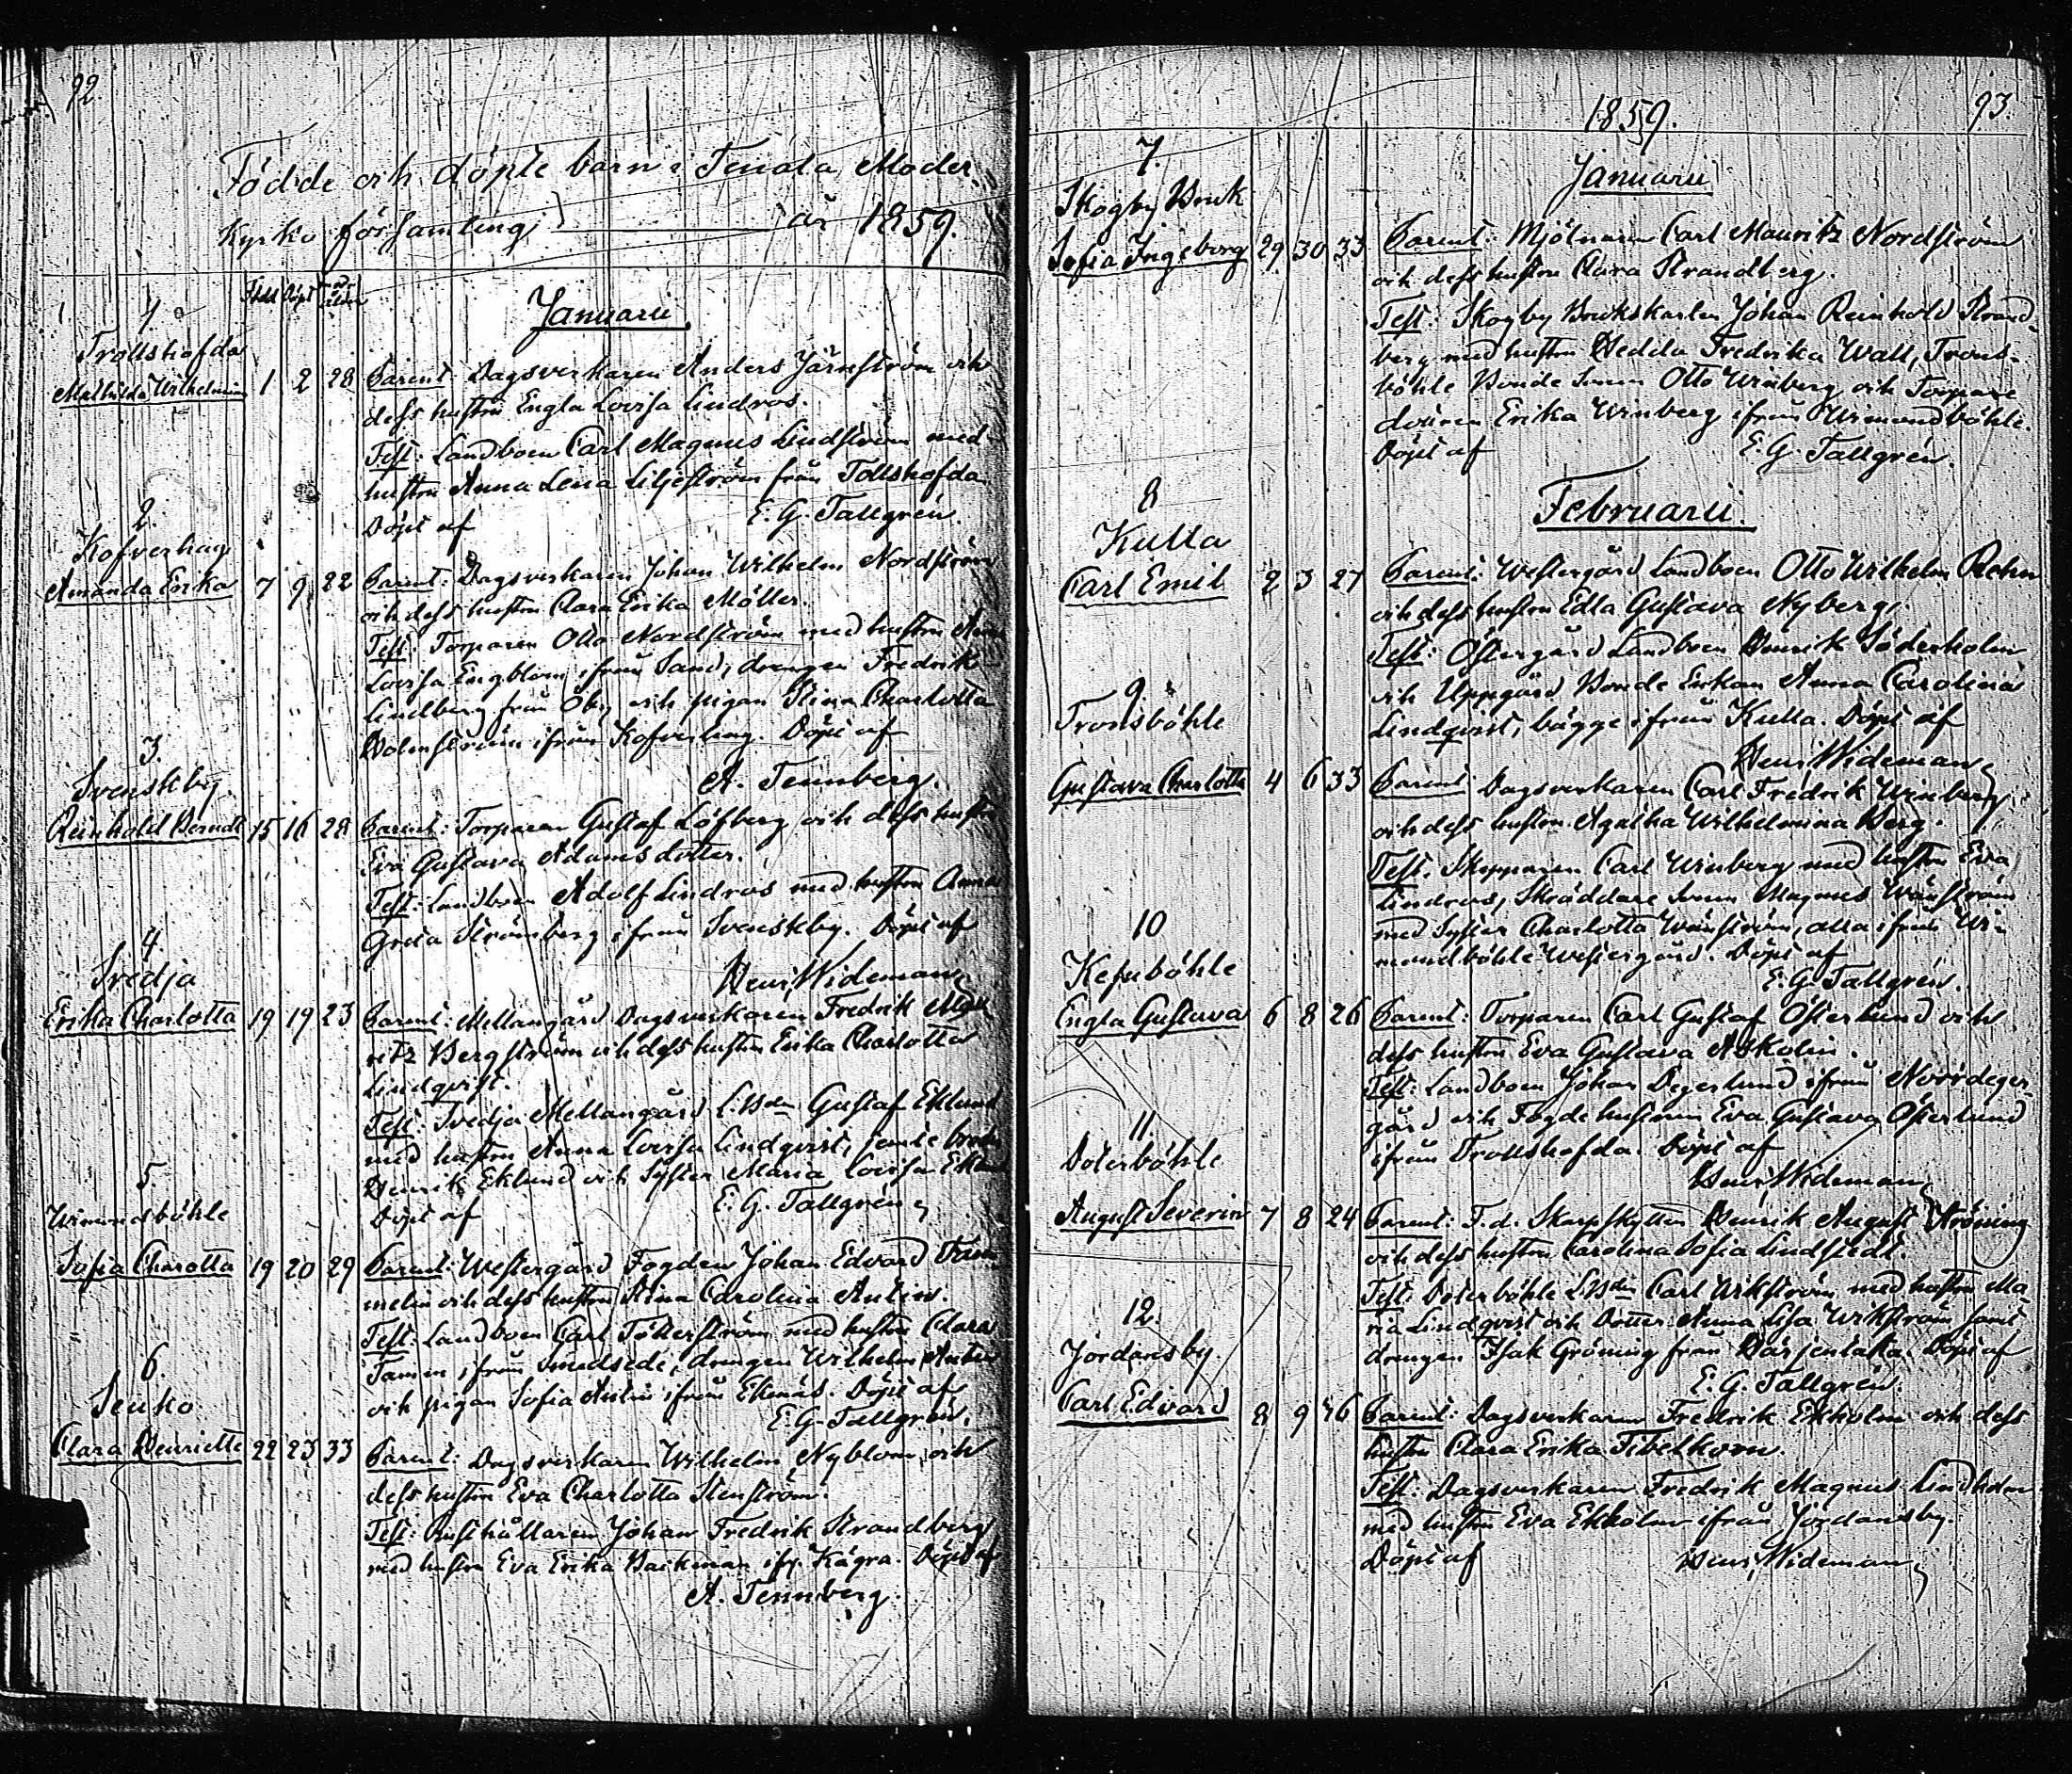 92.
Födde och döpte barn i Tenala Moder
Kyrko församling år 1859.
Född Döpt
Januarii
1.
Trollshofda
Mathilda Wilhelmina 1 2 28 Parent: Dagsverkaren Anders Järnström och
dess hustru Engla Lovisa Lindros.
Test: Landboen Carl Magnus Lindström med
hustru Anna Lena Liljeström från Tollshofda
Döpt af E. G. Tallgrén.
2.
Kofverhag
Amanda Erika 7 9 22 Parent: Dagsverkaren Johan Wilhelm Nordström
och dess hustru Clara Erika Möller.
Test: Torparen Otto Nordström med hustru Anna
Lovisa Engblom ifrån Sand, drengen Fredrik
Lindberg från Oby och pigan Stina Charlotta
Holmström ifrån Kofverhag. Döpt af
A. Tennberg.
3.
Svenskby
Reinhold Berndt 15 16 28 Parent: Torparen Gustaf Löfberg och dess hustru
Eva Gustava Adamsdotter.
Test: Landboen Adolf Lindros med hustru Anna
Greta Strömberg ifrån Svenskby. Döpt af
Henr. Wideman
4.
Svedja
Erika Charlotta 19 19 23 Parent: Mellangård Dagsverkaren Fredrik Mau
ritz Bergström och dess hustru Erika Charlotta
Lindqvist.
Test: Svedja Mellangård L.Bden Gustaf Eklund
med hustru Anna Lovisa Lindqvist, jemte brodr
Henrik Eklund och Syster Maria Lovisa Eklund
Döpt af E. G. Tallgrén
5.
Wimondsböhle
Sofia Charotta 19 20 29 Parent: Westergård Fogden Johan Edvard
melin och dess hustru Stina Carolina Antin.
Test: Landboen Carl Tötterström med hustru Clara
Tamm ifrån Smedsede, drengen Wilhelm Antin
och pigan Sofia Antin ifrån Ekenäs. Döpt af
E. G. Tallgrén.
6.
Senko
Clara Henriette 22 23 33 Parent: Dagsverkaren Wilhelm Nyblom och
dess hustru Eva Charlotta Stenström.
Test: Rusthållaren Johan Fredrik Strandberg
med hustru Eva Erika Backman ifr. Kägra. Döpt af
A. Tennberg.
1859. 93.
Januarii
7.
Skogby Bruk
Sofia Ingeborg 29 30 33 Parent: Mjölnaren Carl Mauritz Nordström
och dess hustru Clara Strandberg.
Test: Skogby Brukskarlen Johan Reinhold Strand-
berg med hustru Hedda Fredrika Wall, Trons-
böhle Bonde Sonen Otto Winberg och Torpare
dottren Erika Winberg ifrån Wimondböhle.
Döpt af E. G. Tallgrén.
Februarii.
8
Kulla
Carl Emil 2 3 27 Parent: Westergård Landboen Otto Wilhelm Rehn
och dess hustru Edla Gustava Nyberg.
Test: Östergård Landboen Henrik Söderholm
och Uppgård Bonde Enkan Anna Carolina
Lindqvist, bägge ifrån Kulla. Döpt af
Henr. Wideman
9.
Tronsböhle
Gustava Charlotta 4 6 33 Parent: Dagsverkaren Carl Fredrik Winberg
och dess hustru Agatha Wilhelmina Berg.
Test: Skepparen Carl Winberg med hustru Eva
Lindros, Skräddare Sonen Magnus Wänström
med Syster Charlotta Wänström, alla ifrån Wi-
mondböhle Westergård. Döpt af
E. G. Tallgrén.
10
Kefnböhle
Engla Gustava 6 8 26 Parent: Torparen Carl Gustaf Österlund och
dess hustru Eva Gustava Askolin.
Test: Landboen Johan Degerlund ifrån Norrdeger
gård och Fogde hustrun Eva Gustava Österlund
ifrån Trollshofda. Döpt af
Henr. Wideman
11.
Doterböhle
August Severin 7 8 24 Parent: F.d. Skarpskytten Henrik August Gröning
och dess hustru Carolina Sofia Lindstedt.
Test: Doterböhle L.Bden Carl Wikström med hustru Ma-
ria Lindqvist och Dotter Anna Lisa Wikström samt
drengen Isak Gröning från Harjenlaka. Döpt af
E. G. Tallgrén.
12.
Jordansby.
Carl Edvard 8 9 46 Parent: Dagsverkaren Fredrik Ekholm och dess
hustru Clara Erika Fibelkorn.
Test: Dagsverkaren Fredrik Magnus Lindholm
med hustru Eva Ekholm ifrån Jordansby.
Döpt af Henr. Wideman